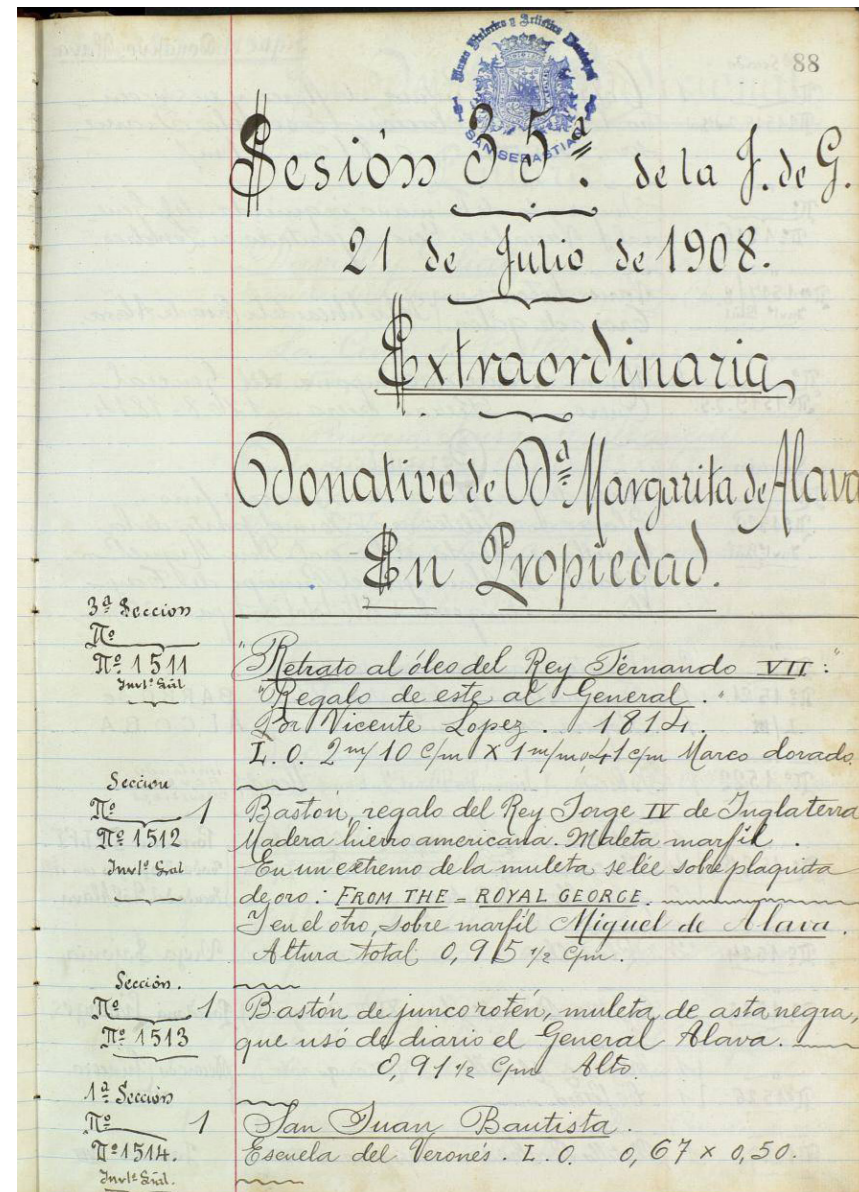 Museo Histórico y Artístico Municipal
SAN SEBASTIAN
88
Sesión 35ª. de la J. de G.
21 de Julio de 1908.
Extraordinaria
Donativo de Dª Margarita de Alava
En Propiedad.
3ª Seccion
Nº
Nº 1511
Invtº Gral
"Retrato al óleo del Rey Fernando VII:"
"Regalo de este al General."
Por Vicente Lopez. 1814.
L. O. 2 m/ 10 c/m X 1 m/m 0,41 c/m Marco dorado.
Seccion
Nº 1
Nº 1512
Invtº Gral
Bastón, regalo del Rey Jorge IV de Inglaterra
Madera hierro americana. Maleta marfil.
En un extremo de la muleta se lée sobre plaquita
de oro: FROM THE = ROYAL GEORGE.
Y en el otro, sobre marfil Miguel de Alava.
Altura total 0,95 1/2 c/m.
Sección.
Nº 1
Nº 1513
Bastón de junco roten, muleta de asta negra,
que usó de diario el General Alava.
0,91 1/2 c/m Alto.
1ª Sección
Nº 1
Nº 1514.
Invtº Gral.
San Juan Bautista.
Escuela del Veronés. L. O. 0,67 x 0,50.